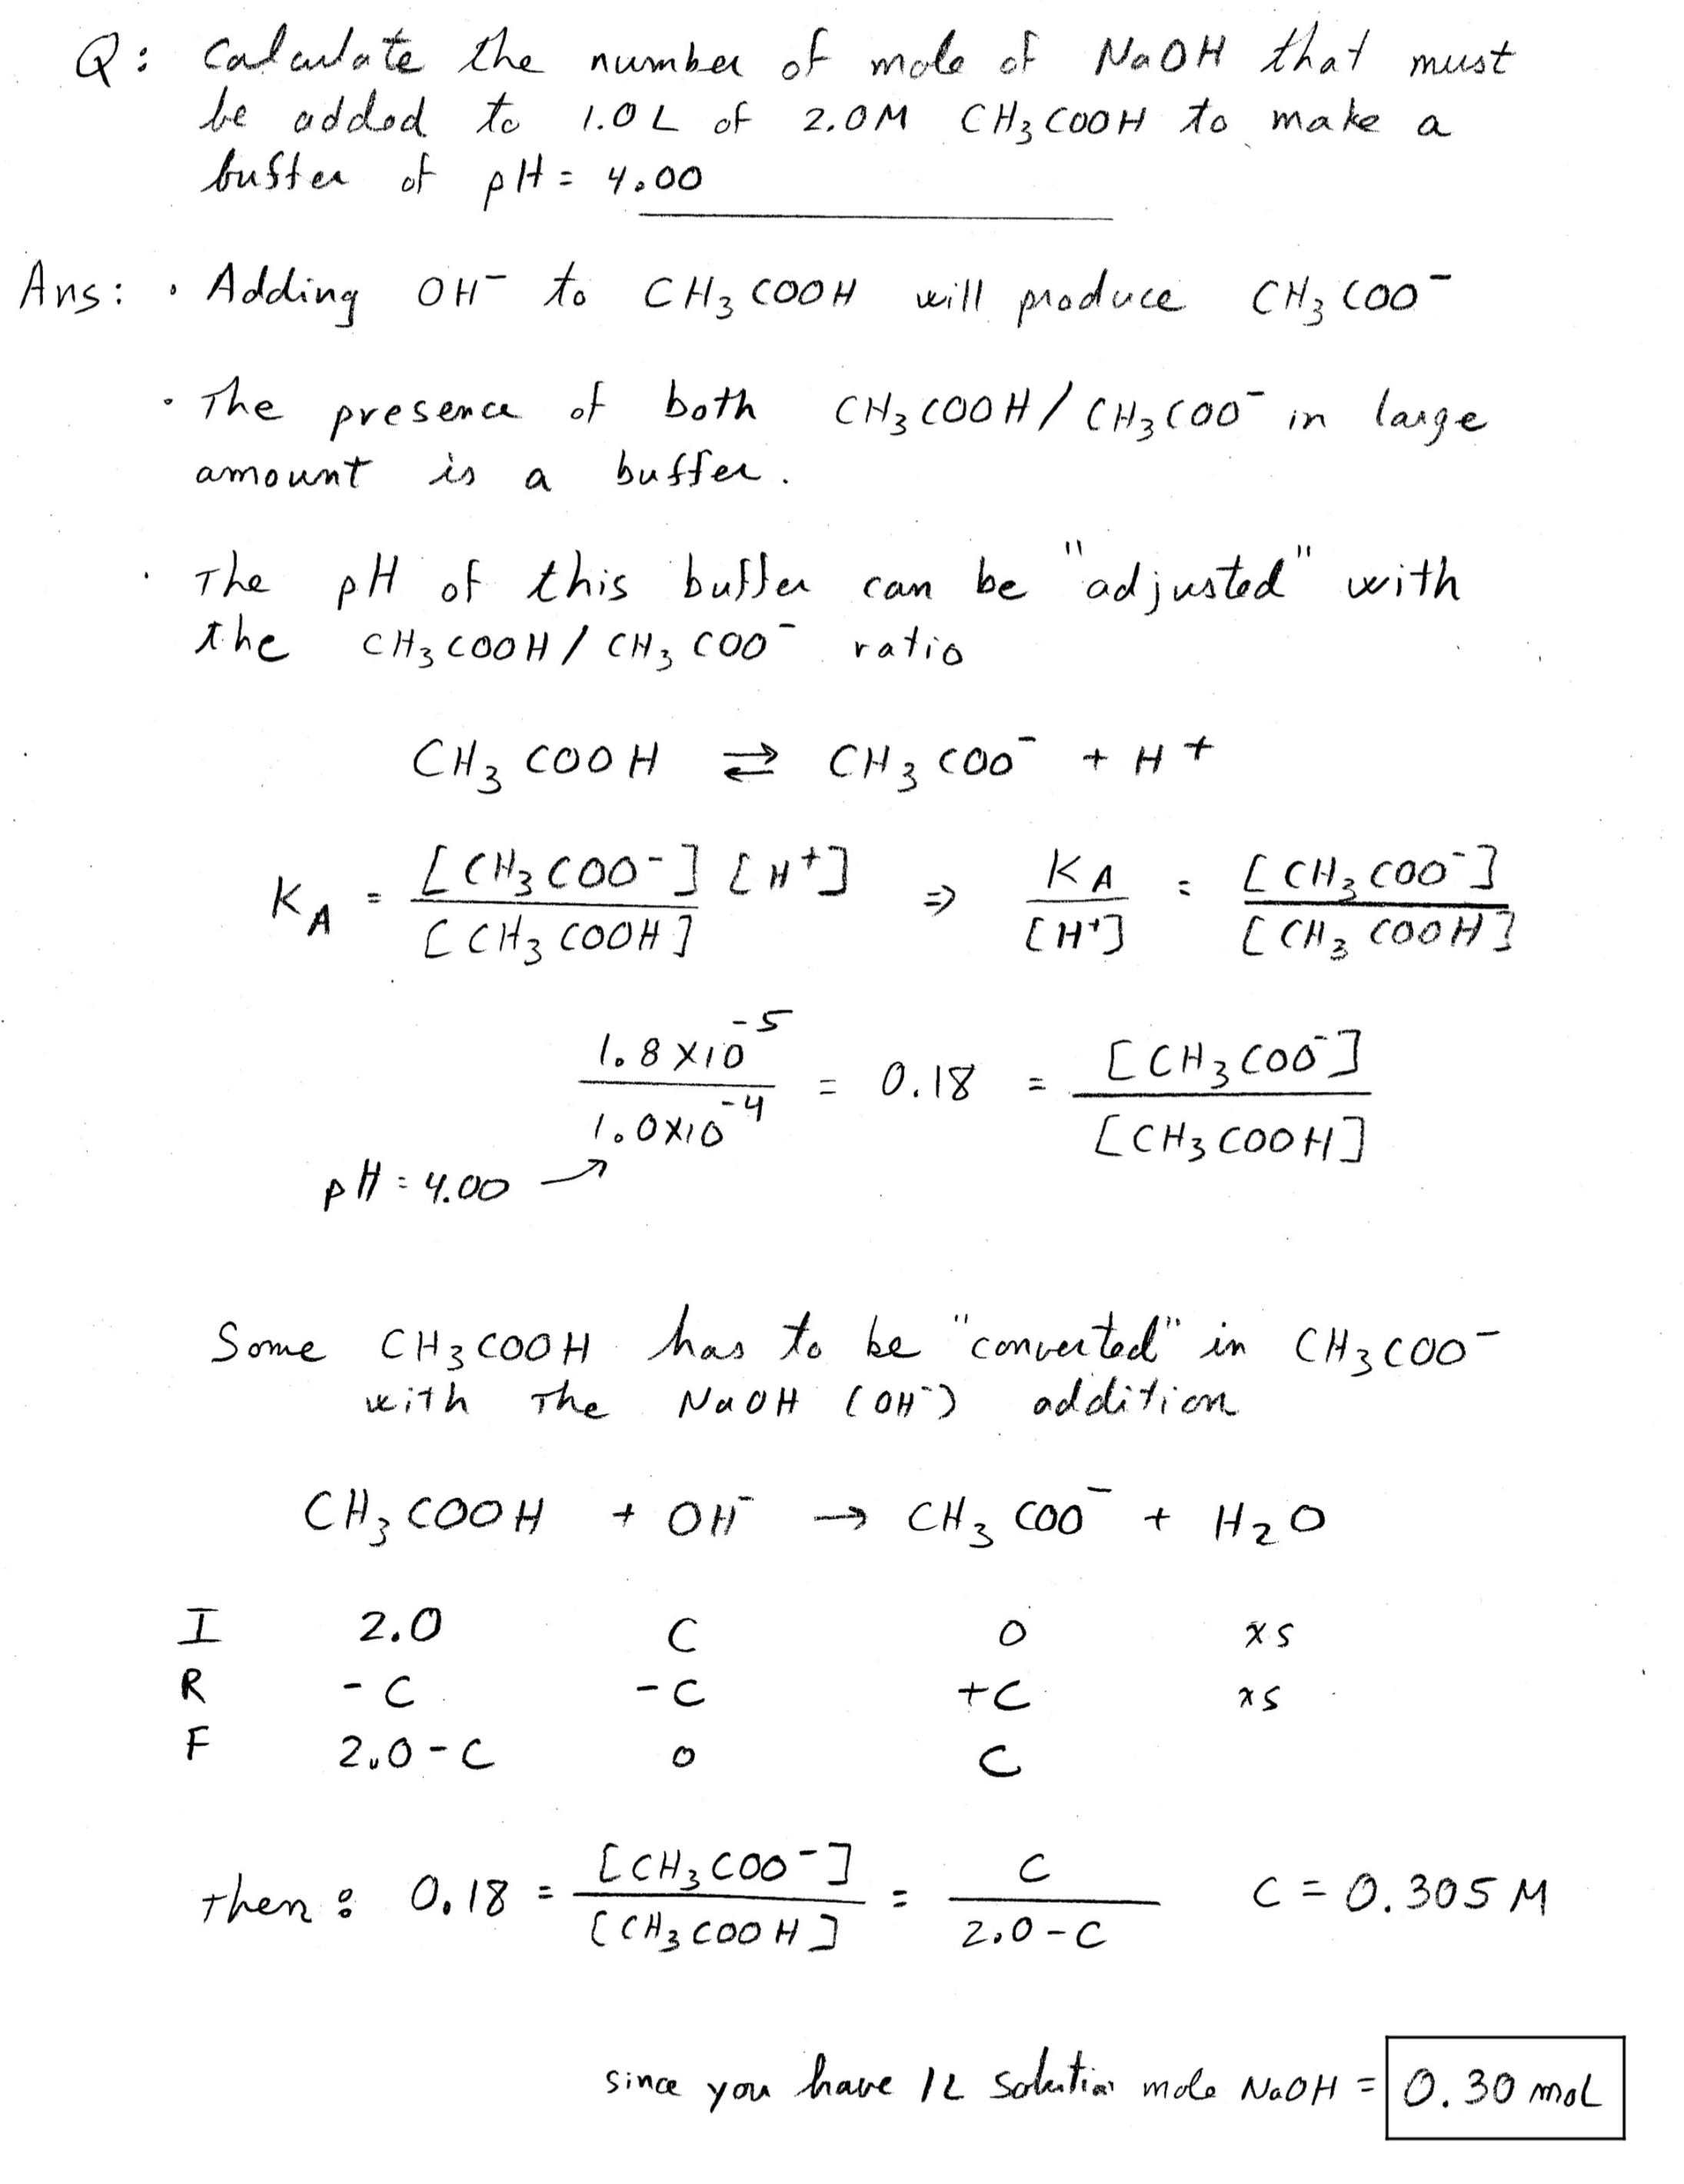 Q: Calculate the number of mole of NaOH that must
be added to 1.0 L of 2.0M CH₃COOH to make a
buffer of pH = 4.00
Ans: • Adding OH⁻ to CH₃COOH will produce CH₃COO⁻
• The presence of both CH₃COOH / CH₃COO⁻ in large
amount is a buffer.
• The pH of this buffer can be "adjusted" with
the CH₃COOH / CH₃COO⁻ ratio
CH₃COOH ⇄ CH₃COO⁻ + H⁺
K_A = [CH₃COO⁻] [H⁺] / [CH₃COOH] ⇒ K_A / [H⁺] = [CH₃COO⁻] / [CH₃COOH]
1.8 x10⁻⁵ / 1.0x10⁻⁴ = 0.18 = [CH₃COO⁻] / [CH₃COOH]
pH = 4.00 →
Some CH₃COOH has to be "converted" in CH₃COO⁻
with The NaOH (OH⁻) addition
CH₃COOH + OH⁻ → CH₃COO⁻ + H₂O
I 2.0 C 0 xs
R -C -C +C xs
F 2.0-C 0 C
Then: 0.18 = [CH₃COO⁻] / [CH₃COOH] = C / 2.0-C C = 0.305 M
since you have 1L solution mole NaOH = 0.30 mol